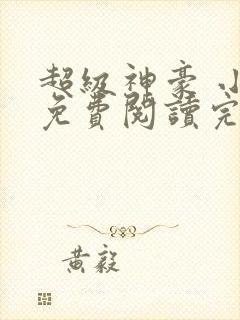 超級神豪 小
免費閱讀完
黃毅